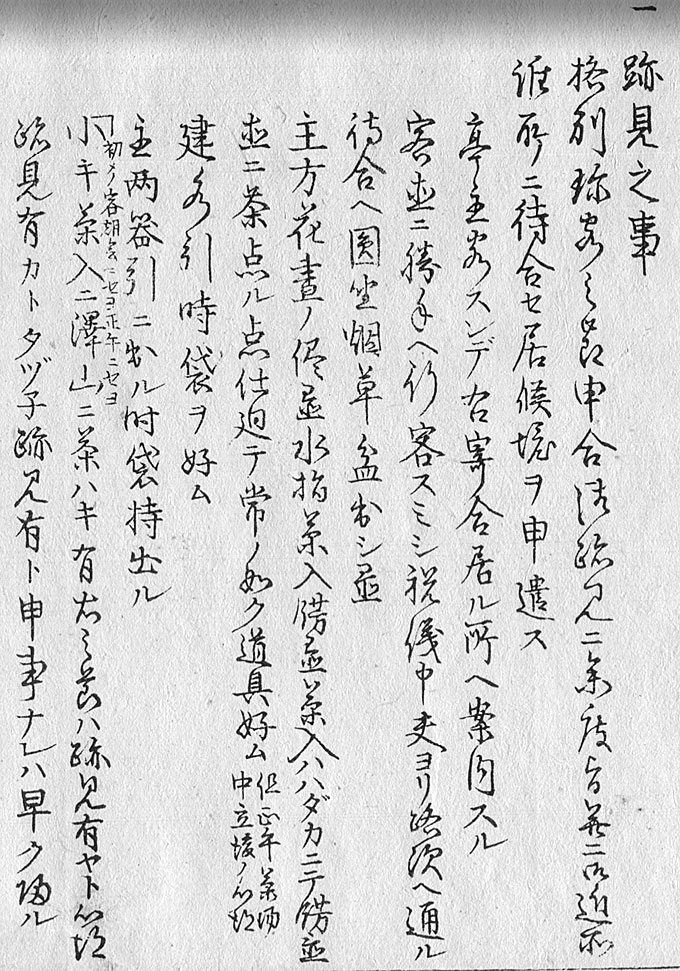 一
跡見之事
格別珍客之節申合法跡見ニ参度旨并ニ御近所
誰所ニ待合セ居候境ヲ申遣ス
亭主客スンデ右寄合居ル所ヘ案内スル
客直ニ勝手ヘ行客スミシ祝儀申夫ヨリ路次ヘ通ル
待合ヘ圓坐烟草盆出シ置
主方花昼ノ侭置水指茶入餝置茶入ハハダカニテ餝置
直ニ茶点ル点仕廻テ常ノ如ク道具好ム 但正午茶湯
中立後ノ心持
建水引時袋ヲ好ム
主両器引ニ出ル時袋持出ル
初メノ客朝会ニセヨ正午ニセヨ
小キ茶入ニ澤山ニ茶ハキ有右之節ハ跡見有ヤト心持
跡見有カトタヅ子跡見有ト申事ナレハ早ク帰ル